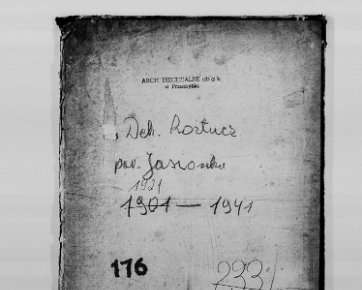 ARCH. DIECEZJALNE ob. g.k.
w Przemyślu
Dek. Roztucz
par. Jasionka
1921
1901 — 1941
176
233/